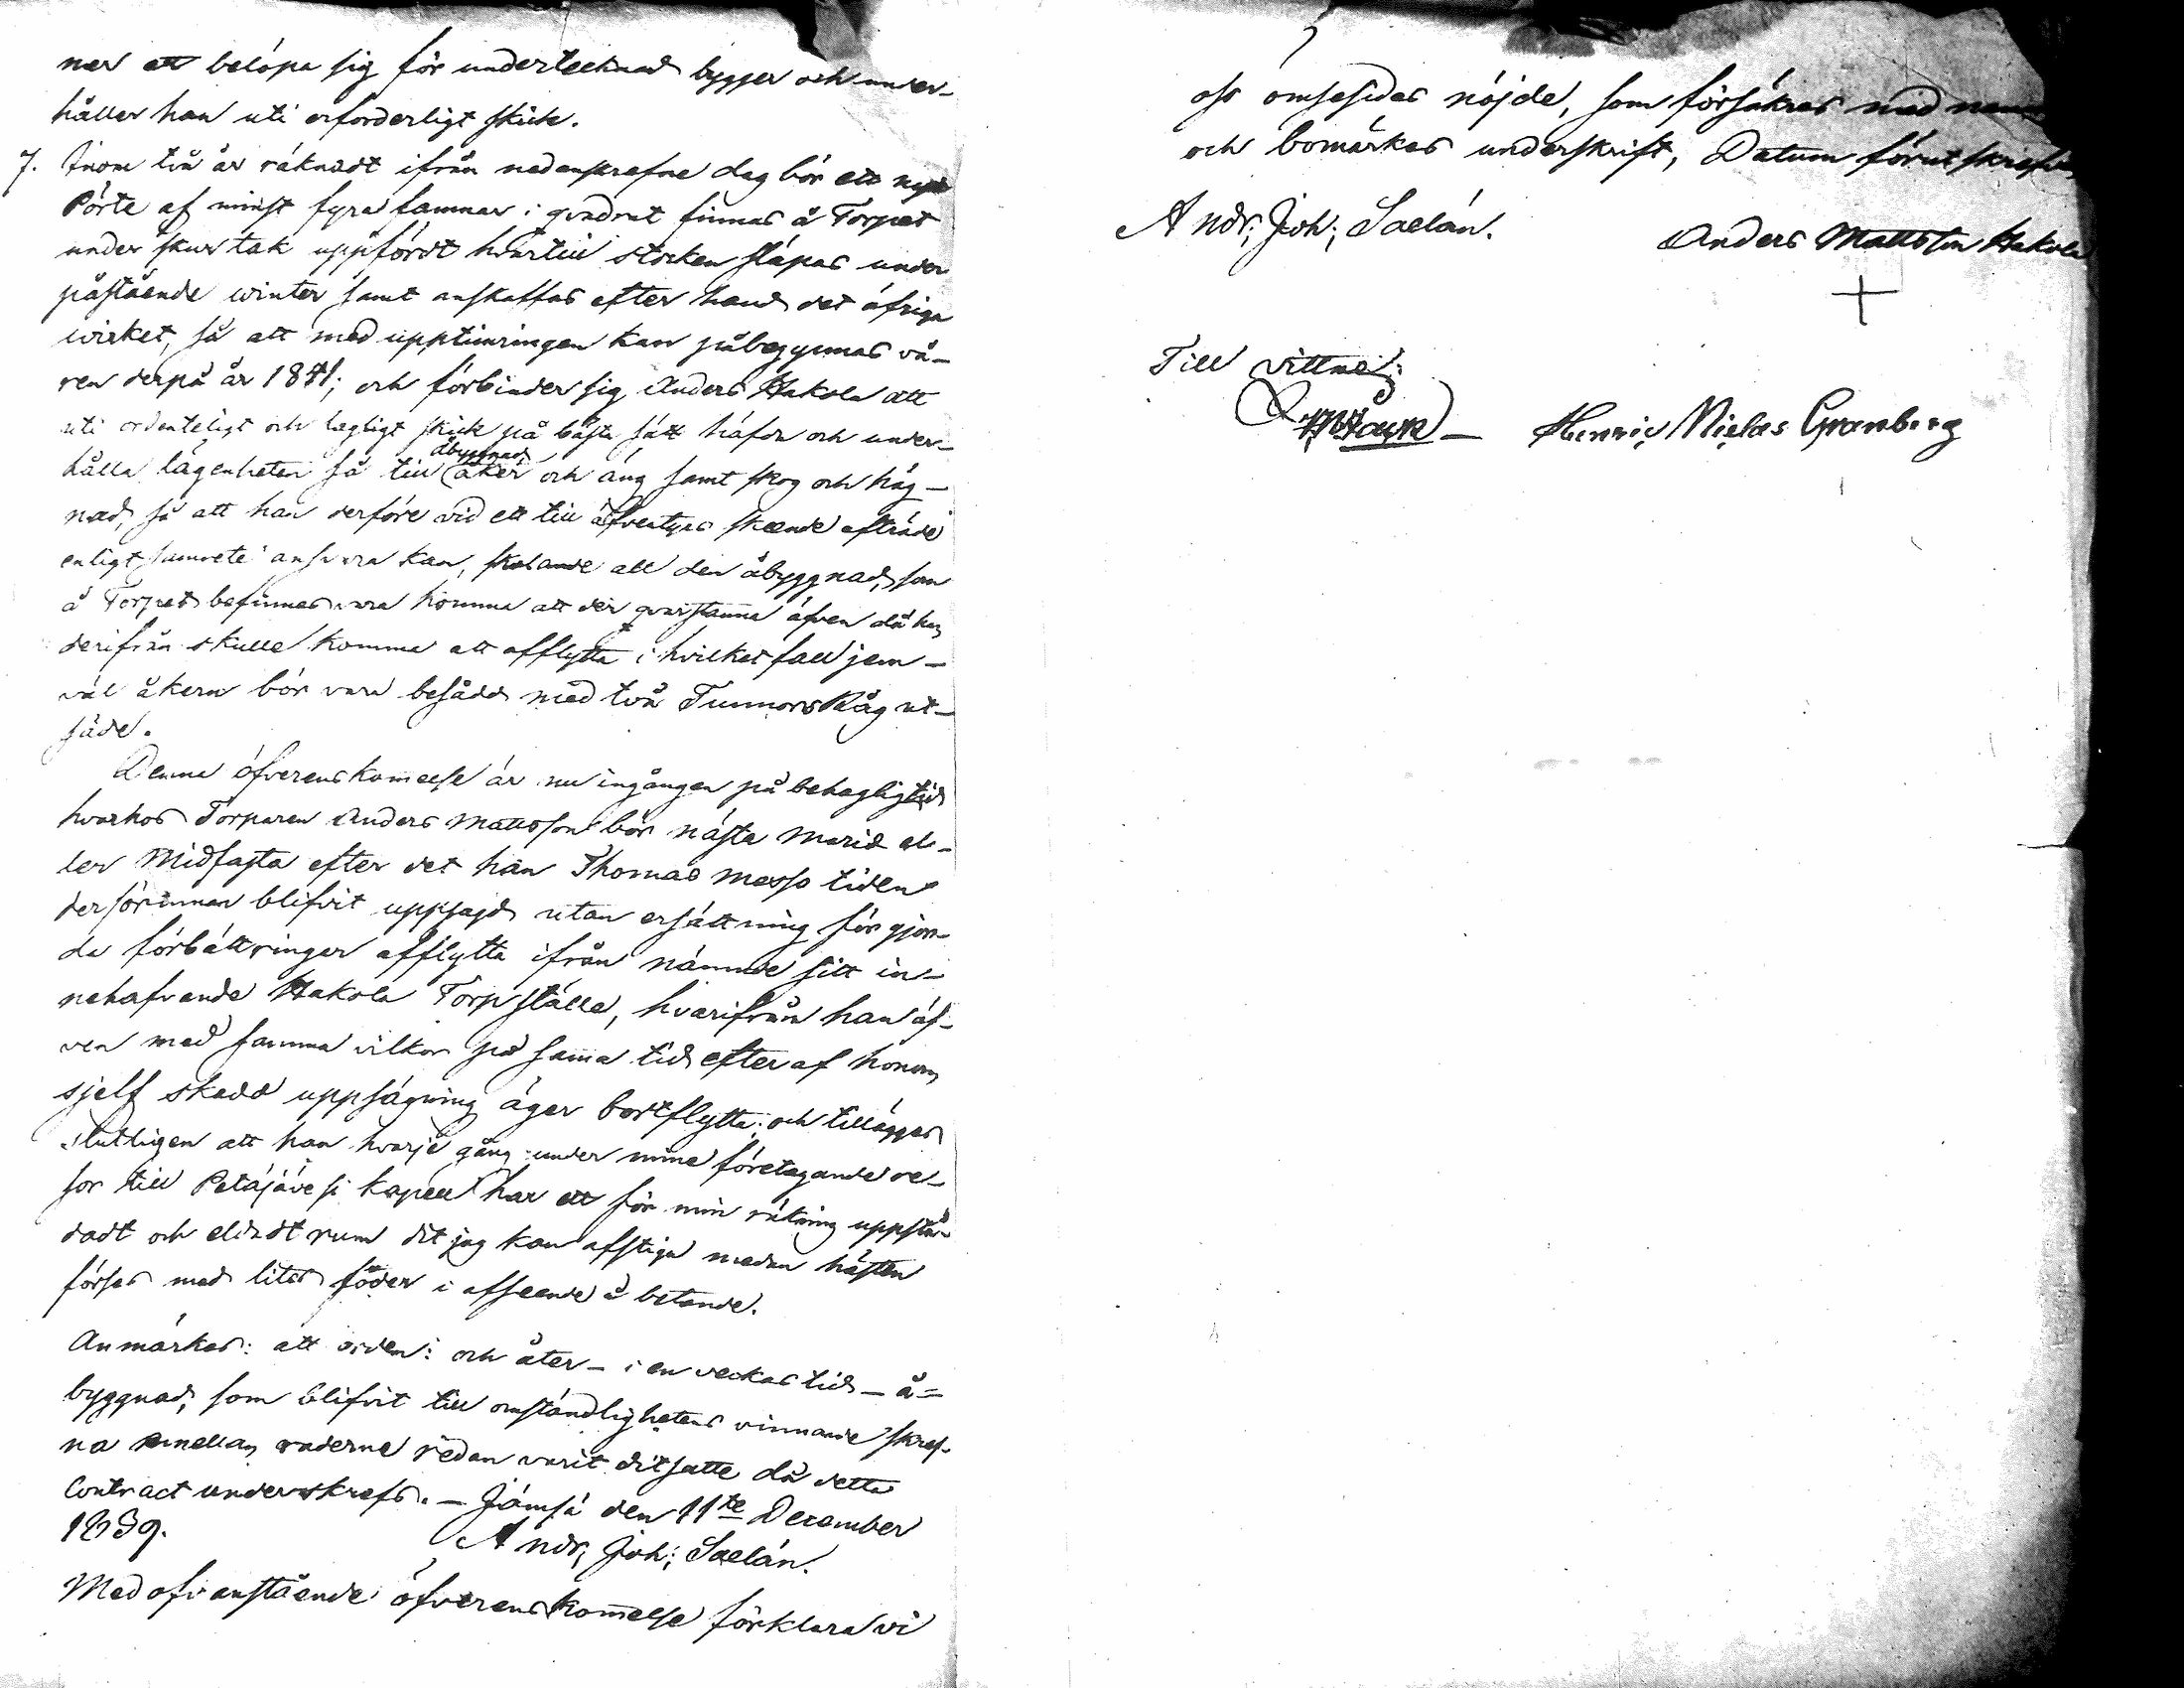 ner att belöpa sig för undertecknad bygger och under-
håller han uti erforderligt skick.
7. Inom två år räknadt ifrån nedanskrefne dag bör ett nytt
Pörte af minst fyra famnar i qvadrat finnas å Torpet
under skurtak uppfördt hvartill stocken släpas under
påstående winter samt anskaffas efter hand det öfriga
wirket, så att med upptimringen kan påbegynnas vå-
ren derpå år 1841; och förbinder sig Anders Hakola att
uti ordenteligt och lagligt skick på bästa sätt häfda och under-
hålla lägenheten så till åbyggnad, åker och äng samt skog och häg-
nad, så att han derföre vid ett till äfventyrs skeende afträde
enligt samvete ansvara kan, skolande all den åbyggnad, som
å Torpet befinnes vara komma att der qvarstanna äfven då han
derifrån skulle komma att afflytta i hvilket fall jem-
väl åkern bör vara besådd med två Tunnors Råg ut-
säde.
Denna öfverenskommelse är nu ingången på behaglig tid
hvarhos Torparen Anders Mattsson bör nästa Mariæ el-
ler Midfasta efter det han Thomas messo tiden
derförinnan blifvit uppsagd utan ersättning för gjor-
da förbättringar afflytta ifrån nämnde sitt in-
nehafvande Hakola Torpställe, hvarifrån han äf-
ven med samma vilkor på sama tid efter af honom
sjelf skedd uppsägning äger bortflytta; och tillägges
slutligen att han hvarje gång under mine företagande re-
sor till Petäjävesi Kapell har ett för min räkning uppstä-
dadt och eldadt rum dit jag kan afstiga medan hästen
förses med litet föder i afseende å betande.
Anmärkes: att orden: och åter - i en veckas tid - å=
byggnad, som blifvit till omständlighetens vinnande skref-
na emellan raderne redan varit ditsatte då detta
Contract underskrefs. - Jämsä den 11te December
1839.
Andr; Joh; Saelán.
Med ofvanstående öfverenskommelse förklara vi
oss ömsesides nöjde, som försäkras med namn
och bomärkes underskrift, Datum förutskrefven
Andr; Joh; Saelán.
Anders Mattsson Hakola
Till vittne:
Henric Niclas Granberg